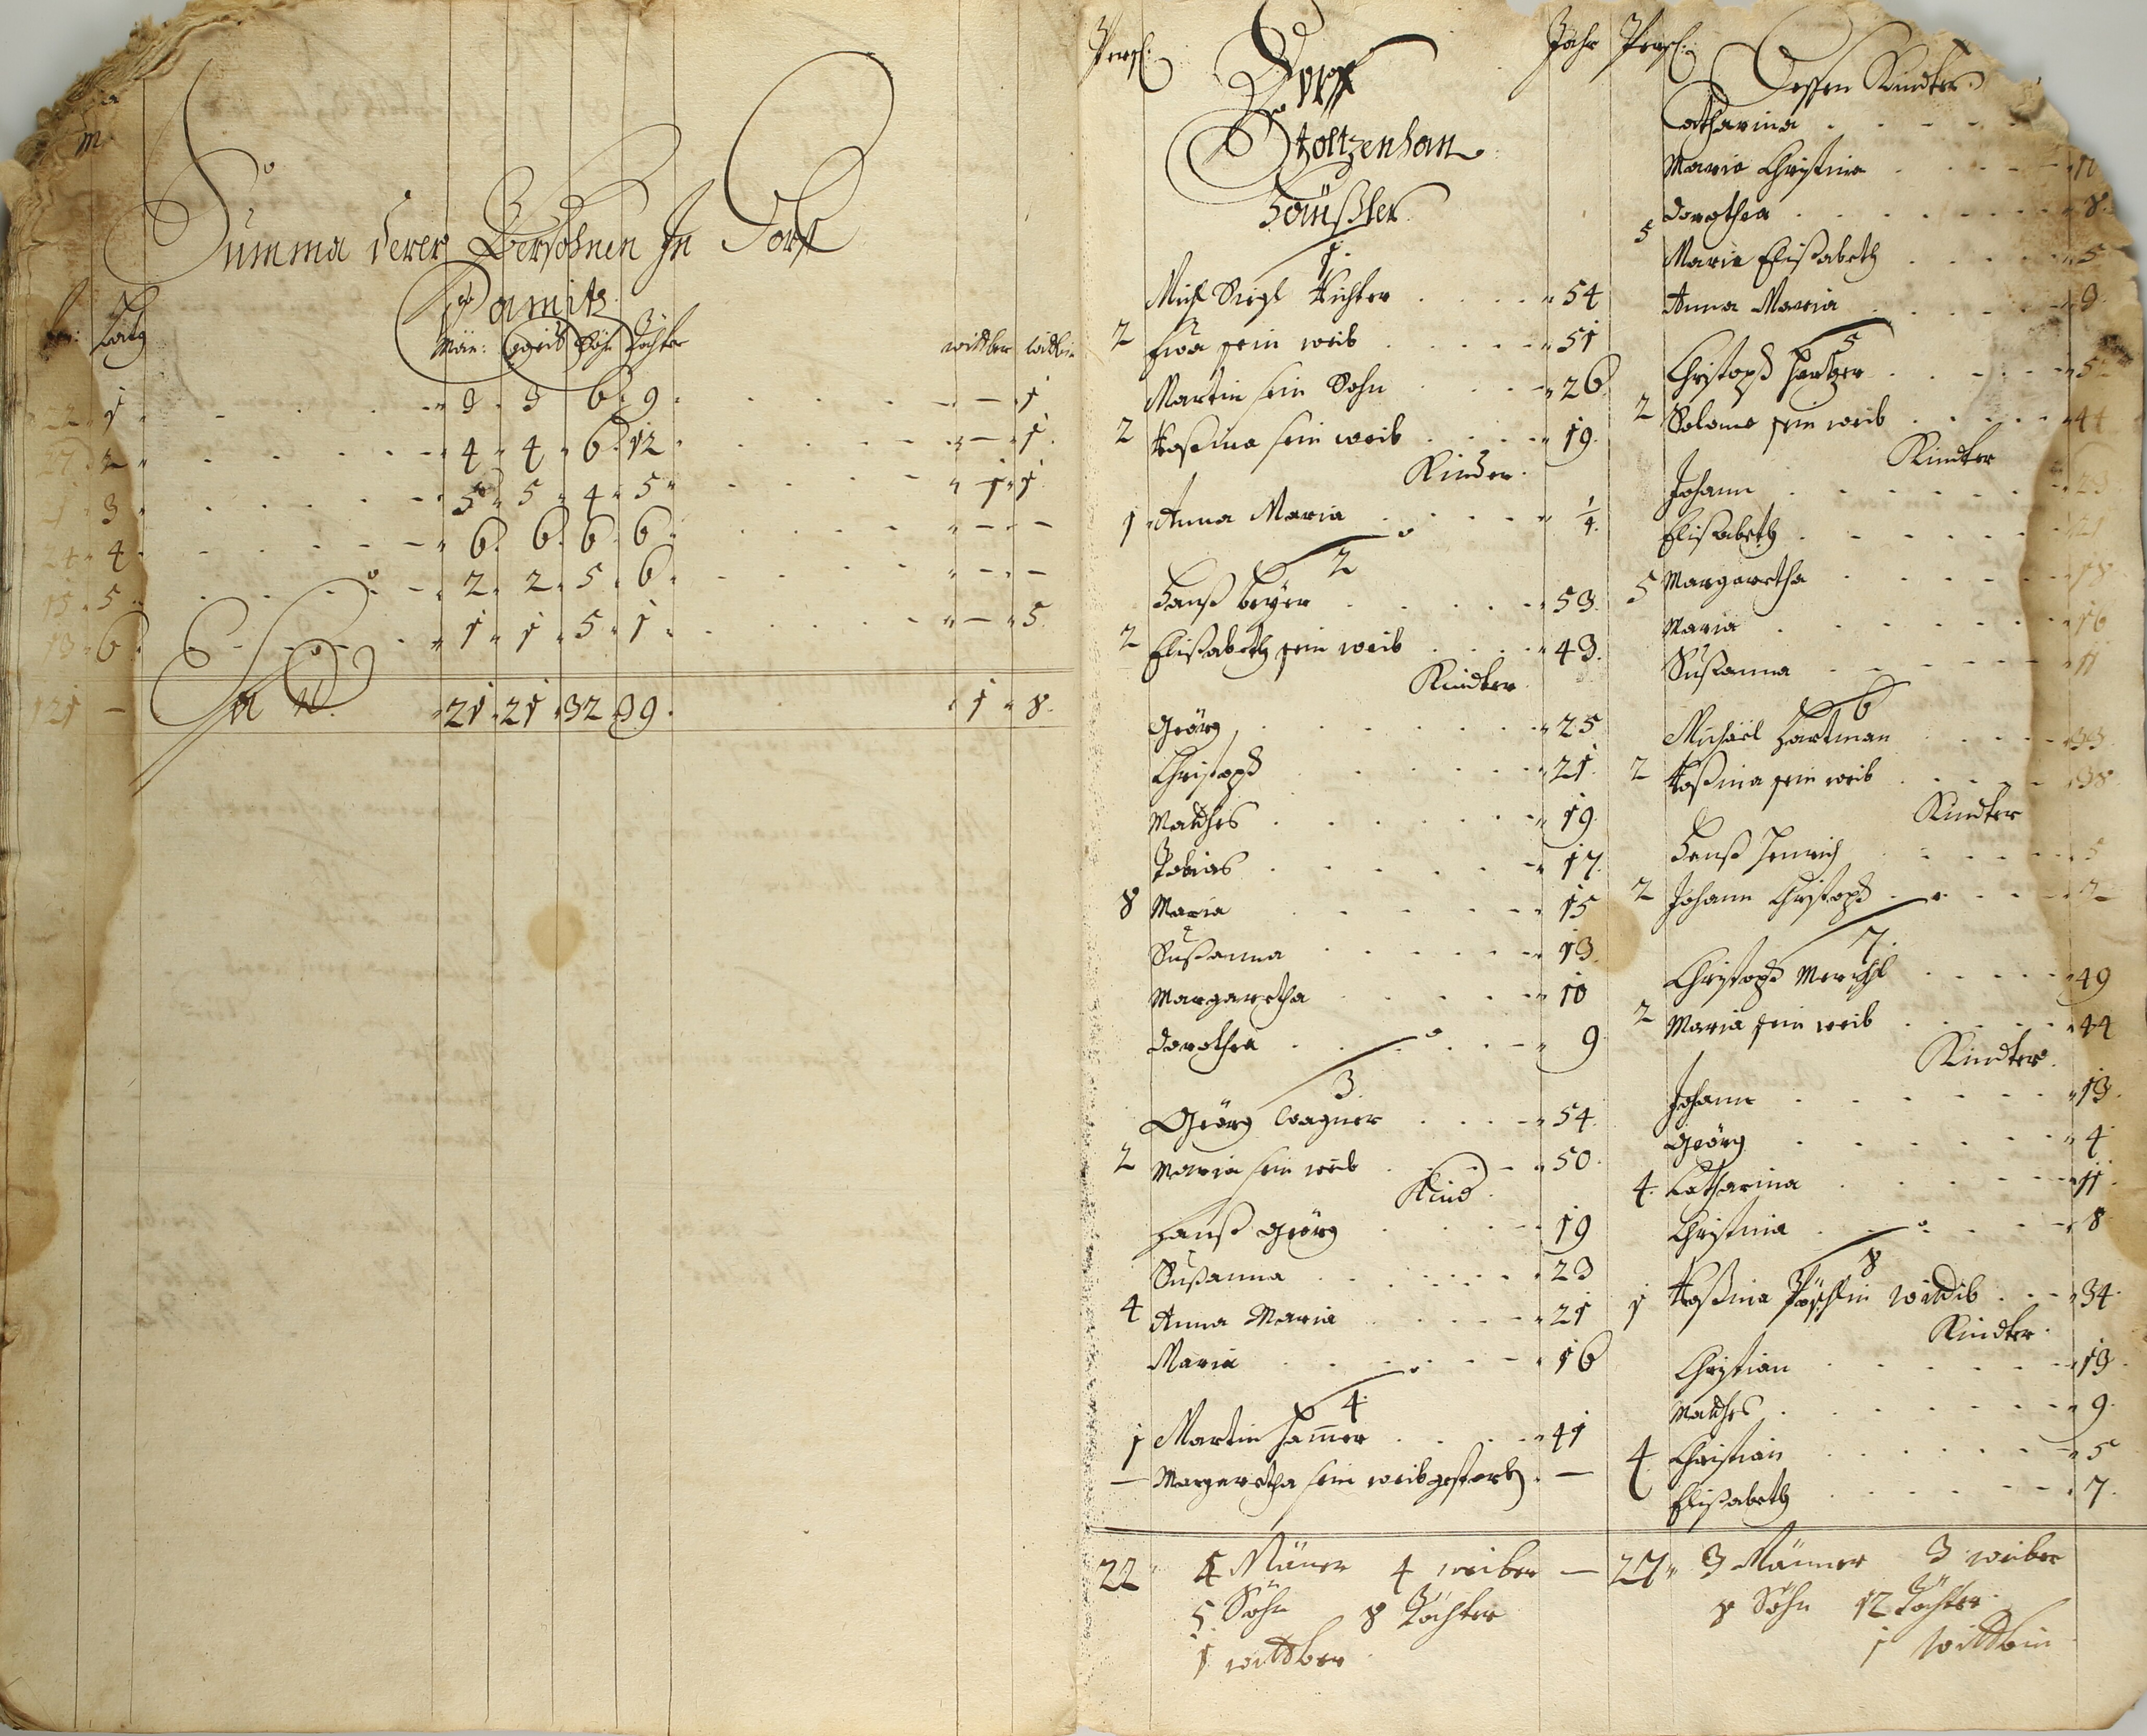 Summa derer Persohnen In Dorf
Pamitz
Latg Män: Weib Söhn Töchter wittber wittbin
22 1 3 3 6 9 — 1
27 2 4 4 6 12 — 1
3 5 5 4 5 1 1
24 4 6 6 6 6 — —
15 5 2 2 5 6 — —
13 6 1 1 5 1 — 5
121 — 21 21 32 39 1 8
Persl: Jahr
Dorff
Stoltzenhan
Häüßler
1
Michl Siegl Richter 54
2 Eva sein weib 51
Martin sein Sohn 26
2 Rosina sein weib 19
Kinder
1 Anna Maria ¼
2
Hanß beyer 53
2 Elisabeth sein weib 43
Kindter
Geörg 25
Christoph 21
Matthes 19
Tobias 17
8 Maria 15
Susanna 13
Margaretha 10
Dorothea 9
3
Geörg Wagner 54
2 Maria sein weib 50
Kind
Hanß Geörg 19
Susanna 23
4 Anna Maria 21
Maria 16
4
1 Martin Ham̄er 41
— Margaretha sein weib gestorb —
22 4 Mäner 4 weiber —
5 Söhn 8 Töchter
1 wittber
Persl:
Dessen Kindter
Catharina
Maria Christina
Dorothea 8
5 Maria Elisabeth 5
Anna Maria 3
5
Christoph
2 Salome sein weib 44
Kindter
Johann 23
Elisabeth 21
5 Margaretha 18
Maria 16
Susanna 11
6
Michäel Hartman 33
2 Rosina sein weib 38
Kindter
Hanß Heinrich 5
2 Johann Christoph 2
7
Christoph 49
2 Maria sein weib 44
Kindter
Johann 13
Geörg 4
4 Catharina 11
Christina 8
8
1 Rosina Pöschlin wittib 34
Kindter
Christian 13
Matthes 9
4 Christian 5
Elisabeth 7
27 3 Männer 3 weiber
8 Söhn 12 Töchter
1 wittbin